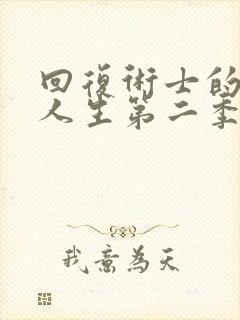 回復術士的
人生第二季
我意為天